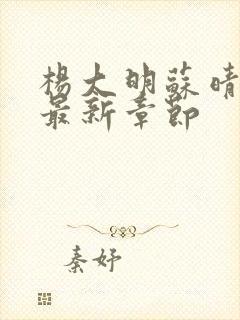 楊太明蘇晴
最新章節
秦妤